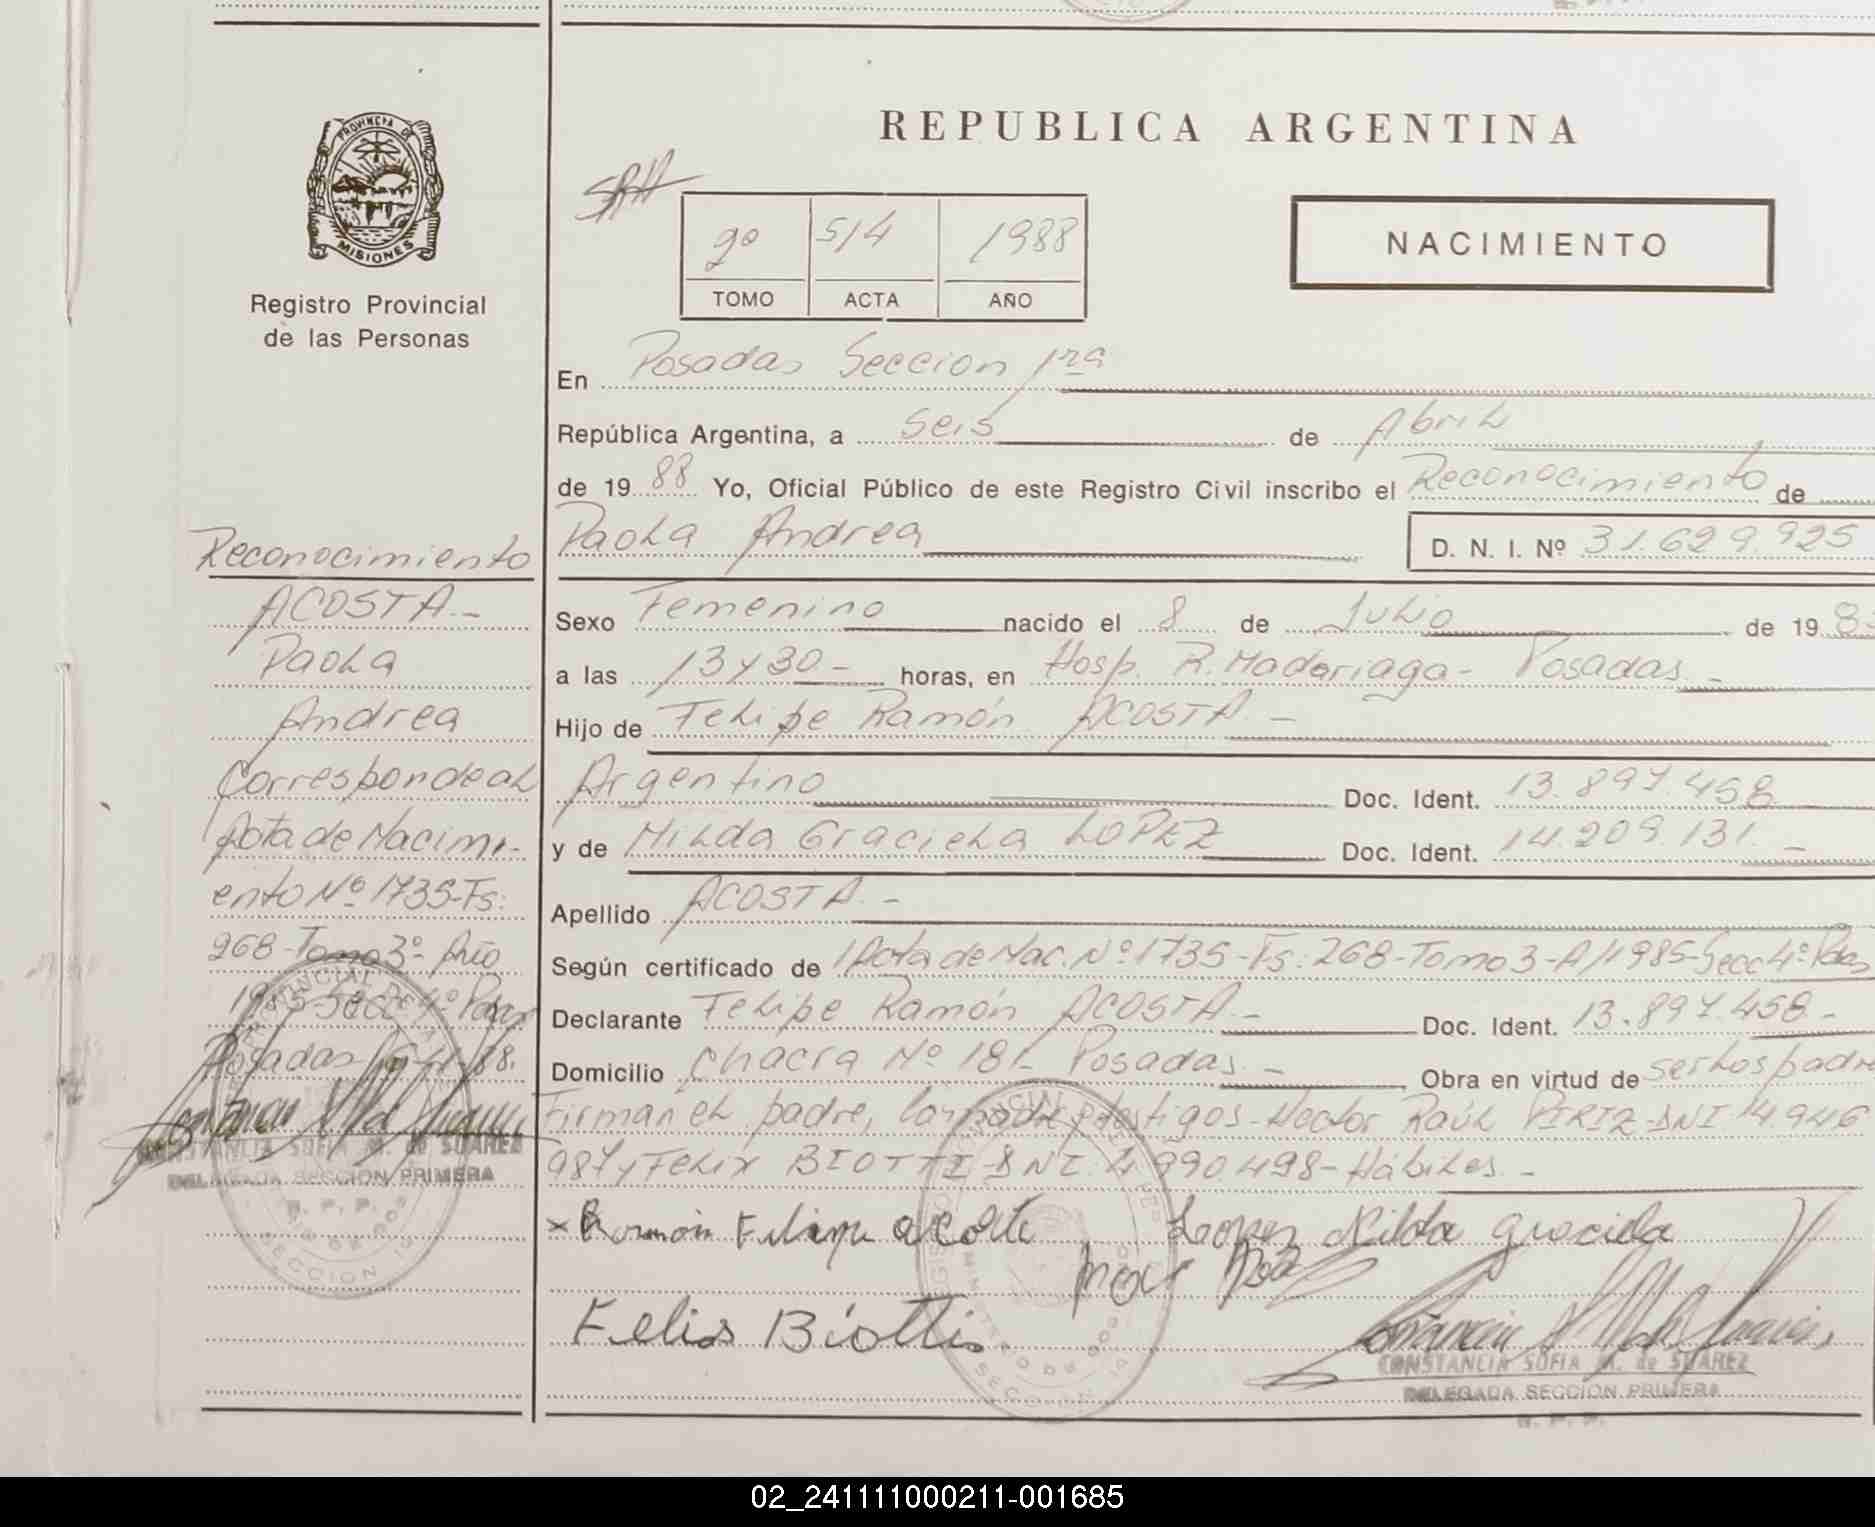 REPUBLICA ARGENTINA
PROVINCIA DE
MISIONES
Registro Provincial
de las Personas
2º 514 1988
TOMO ACTA AÑO
NACIMIENTO
En Posadas Seccion 1ra
República Argentina, a seis de Abril
de 1988 Yo, Oficial Público de este Registro Civil inscribo el Reconocimiento de
Paola Andrea D. N. I. Nº 31.629.925
Sexo Femenino nacido el 8 de Julio de 19
a las 13 y 30- horas, en Hosp. R. Madariaga- Posadas.-
Hijo de Felipe Ramón ACOSTA.-
Argentino Doc. Ident. 13.897.458
y de Nilda Graciela LOPEZ Doc. Ident. 14.209.131.-
Apellido ACOSTA.-
Según certificado de Acta de Nac. Nº 1735-Fs: 268-Tomo 3-A/1985-Secc 4º Pdas
Declarante Felipe Ramón ACOSTA.- Doc. Ident. 13.897.458.-
Domicilio Chacra Nº 181- Posadas.- Obra en virtud de ser los padre
Firman el padre, la madre y testigos-Hector Raúl PIRIZ-DNI 4.946
987 y Felix BIOTTI-DNI. 4.990.498-Hábiles.-
Ramón Felipe acosta Lopez Nilda graciela
Felis Biottis
CONSTANCIA SOFIA M. de SUAREZ
DELEGADA SECCION PRIMERA
R. P. P.
Reconocimiento
ACOSTA.-
Paola
Andrea
Corresponde al
Acta de Nacimi-
ento Nº 1735-Fs:
268-Tomo 3º-Año
1985-Secc 4º Pdas
Posadas 88.
CONSTANCIA SOFIA M. de SUAREZ
DELEGADA SECCION PRIMERA
R. P. P.
02_241111000211-001685